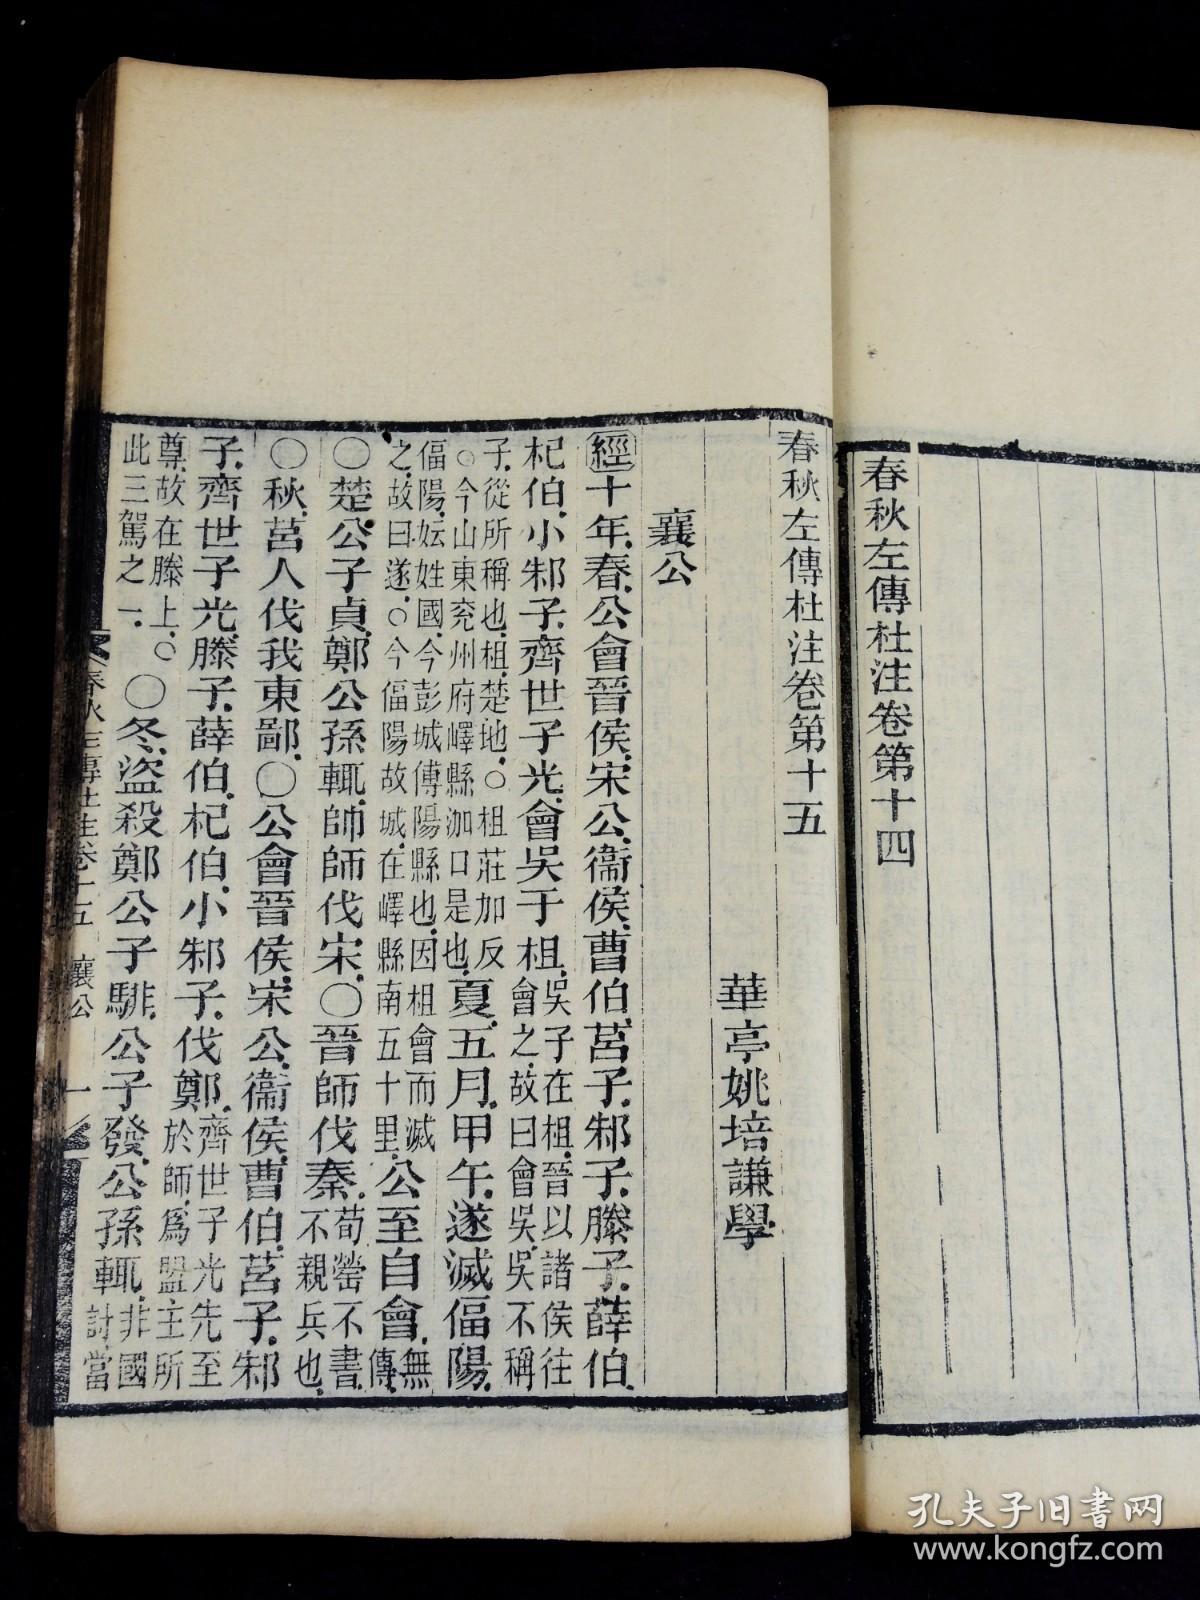 春秋左傳杜注卷第十四
春秋左傳杜注卷第十五
華亭姚培謙學
襄公
經十年、春、公會晉侯、宋公、衞侯、曹伯、莒子、邾子、滕子、薛伯、
杞伯、小邾子、齊世子光、會吳于柤、吳子在柤、晉以諸侯往會之、故曰會吳、吳不稱
子、從所稱也、柤、楚地、○柤莊加反○今山東兖州府嶧縣泇口是也、夏、五月、甲午、遂滅偪陽、
偪陽、妘姓國、今彭城傅陽縣也、因柤會而滅之、故曰遂、○今偪陽故城、在嶧縣南五十里、公至自會、無傳、
○楚公子貞、鄭公孫輒、帥師伐宋、○晉師伐秦、荀罃不書、不親兵也、
○秋、莒人伐我東鄙、○公會晉侯、宋公、衞侯、曹伯、莒子、邾
子、齊世子光、滕子、薛伯、杞伯、小邾子、伐鄭、齊世子光先至於師、爲盟主所
尊、故在滕上、○此三駕之一、○冬、盜殺鄭公子騑、公子發、公孫輒、非國討、當
春秋左傳杜注卷十五 襄公 一
孔夫子旧书网
www.kongfz.com